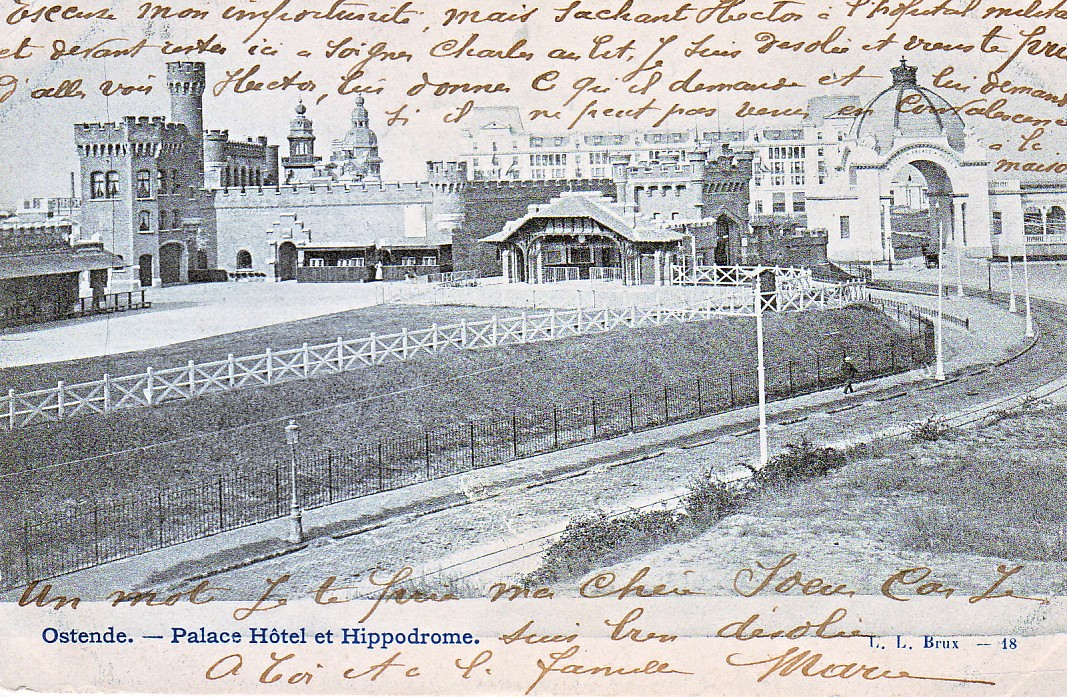 Excuse mon importunité, mais sachant Hector à l'hôpital militai
et devant rester ici a soigner Charles au lit, Je suis désolée et viens te prie
d'aller voir Hector, lui donner C qu'il demande et lui demand
si il ne peut pas venir en Convalescence
a la
maison
Un mot Je te prie ma Chère Soeur Car Je
Ostende. — Palace Hôtel et Hippodrome. suis bien désolée L. L. Brux — 18
A toi et a la famille Marie